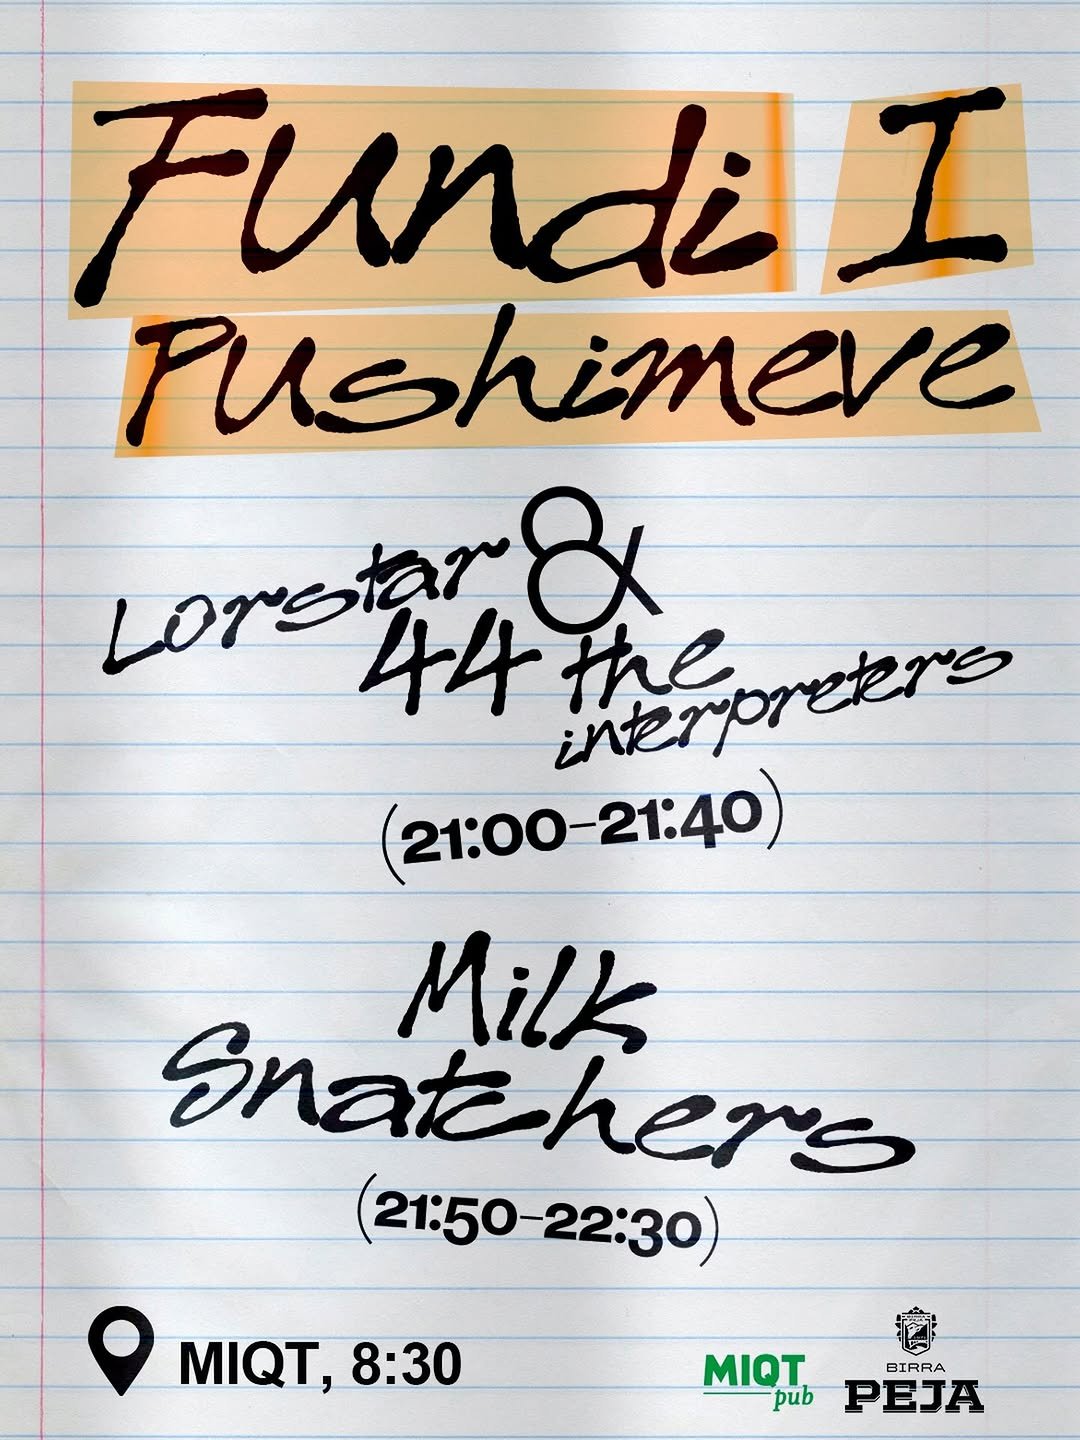 Fundi I
Pushimeve
Lorstar &
44 the
interpreters
(21:00-21:40)
Milk
Snatchers
(21:50-22:30)
MIQT, 8:30
MIQT
pub
BIRRA
PEJA